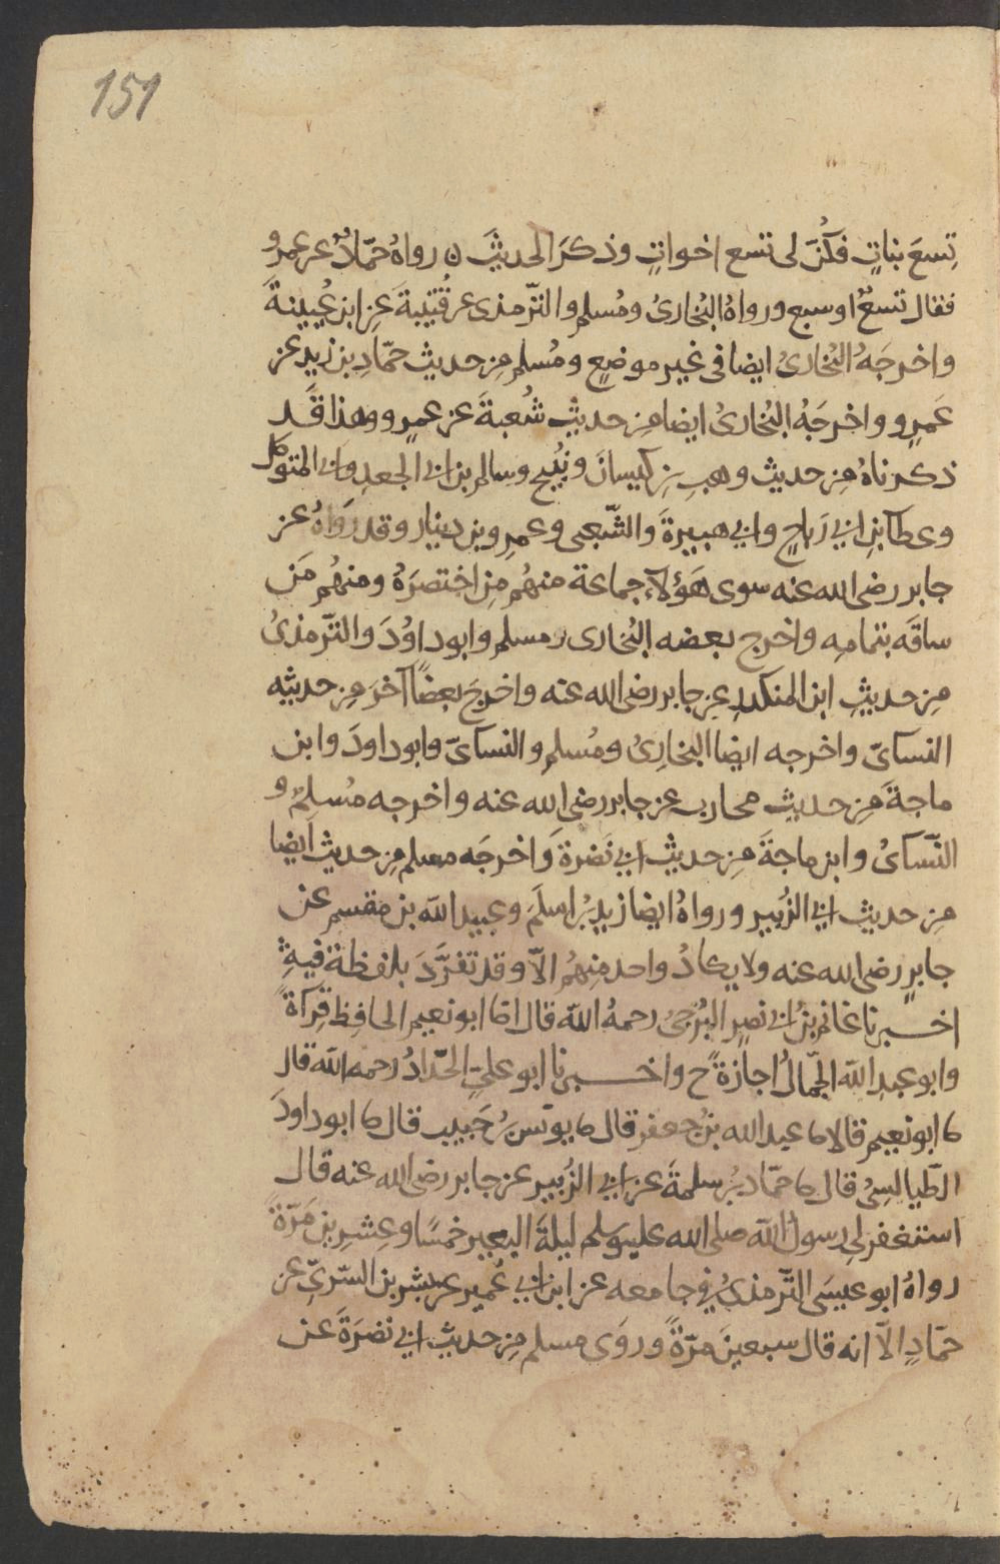 151
تِسعَ بناتٍ فكُنّ لى تسع اخواتٍ وذكرَ الحديثَ ن رواهُ حمّادٌ عن عمرو
فقال تسعٌ او سبع ورواهُ البُخارىُ ومُسلم والتّرمذى عن قُتَيبةَ عن ابن عُيينةَ
واخرجَهُ البُخارىُ ايضا فى غير موضعٍ ومُسلم من حديث حمّادِ بن زيد عن
عَمرٍو واخرجَهُ البُخارىُ ايضا من حديثِ شُعبةَ عن عمرٍو وهذا قَد
ذكرناهُ من حديث وهبِ بن كيسانَ ونُبيحٍ وسالم بن ابى الجعدِ وابى المتوكل
وعطا بنِ ابى رَباحٍ وابى هبيرةَ والشّعبى وعمرو بن دينار وقد رَواهُ عن
جابر رضى الله عنه سوى هَؤلآء جماعة منهُم من اختصرَهُ ومنهُم مَن
ساقَه بتمامِه واخرج بعضه البُخارى ومسلم وابو داوُدَ والتّرمذىُ
من حديثِ ابن المنكدِر عن جابر رضى الله عنه واخرجَ بعضًا آخرَ من حديثِه
النسائىّ واخرجه ايضا البخارىُ ومُسلم والنسائىّ وابو داودَ وابن
ماجةَ من حديث محارب عن جابر رضى الله عنه واخرجه مُسلمٌ و
النّسائىُ وابن ماجةَ من حديث ابى نَضرةَ واخرجَه مسلم من حديث ايضا
من حديث ابى الزُبير ورواهُ ايضا زيد بنُ اسلَمَ وعبيد الله بن مقسم عن
جابرٍ رضى الله عنه ولا يكادُ واحد منهُم الاّ وقد تفرَّدَ بلفظة فيهِ
اخبرنا غانم بنُ ابى نصرٍ البُرجىُ رحمهُ الله قال انا ابو نعيم الحافِظ قرآةً
وابو عبدِ الله الجمّالُ اجازةً ح واخبرنا ابو علىٍ الحدّادُ رحمه الله قال
نا ابو نعيم قالا نا عبد الله بنُ جعفرٍ قال نا يونسُ بنُ حَبيب قال نا ابو داودَ
الطّيالسِىُ قال نا حمّاد بنُ سلمةَ عن ابى الزُبير عن جابر رضى الله عنه قال
استغفر لى رسولُ الله صلى الله عليه وسلم ليلةَ البعير خمسًا وعِشرِين مَرّةً
رواهُ ابو عيسَى التّرمذىُ فى جامعه عن ابن ابى عُمير عن بشر بن السّرىّ عن
حمّادٍ الاّ انه قال سبعينَ مَرّةً وروَى مسلم من حديث ابى نضرَةَ عن